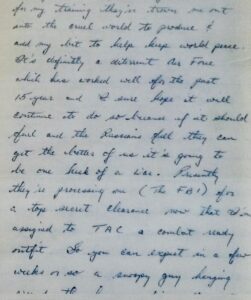 for my training they've thrown me out
into the cruel world to produce &
and my bit to help keep world peace
It's definitly a different Air Force
which has worked well for the past
15 year and I sure hope it will
continue to do so because if it should
fail and the Russians feel they can
get the better of us it's going to
be one heck of a war. Presently
they're processing me (The FBI) for
a top secret clearance now that I'm
assigned to TAC a combat ready
outfit. So you can expect in a few
weeks or so a snoopy guy hanging